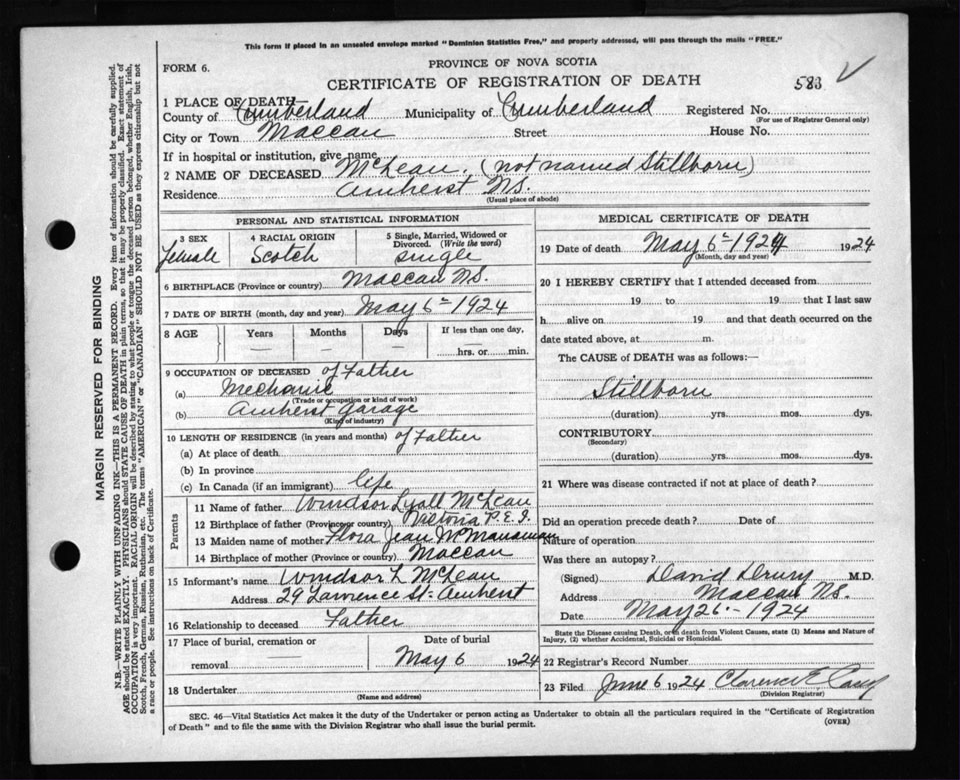 This form if placed in an unsealed envelope marked "Dominion Statistics Free," and properly addressed, will pass through the mails "FREE."
FORM 6.
PROVINCE OF NOVA SCOTIA
CERTIFICATE OF REGISTRATION OF DEATH
583
1 PLACE OF DEATH
County of Cumberland Municipality of Cumberland Registered No.
(For use of Registrar General only)
City or Town Maccan Street House No.
If in hospital or institution, give name
2 NAME OF DECEASED McLean, (not named Stillborn)
Residence Amherst N.S.
(Usual place of abode)
PERSONAL AND STATISTICAL INFORMATION
3 SEX 4 RACIAL ORIGIN 5 Single, Married, Widowed or Divorced. (Write the word)
Female Scotch Single
6 BIRTHPLACE (Province or country) Maccan N.S.
7 DATE OF BIRTH (month, day and year) May 6th 1924
8 AGE Years Months Days If less than one day,
hrs. or min.
9 OCCUPATION OF DECEASED of Father
(a) Mechanic
(Trade or occupation or kind of work)
(b) Amherst Garage
(Kind of industry)
10 LENGTH OF RESIDENCE (in years and months) of Father
(a) At place of death
(b) In province
(c) In Canada (if an immigrant) life
Parents
11 Name of father Windsor Lyall McLean
12 Birthplace of father (Province or country) Victoria P.E.I.
13 Maiden name of mother Flora Jean McManaman
14 Birthplace of mother (Province or country) Maccan
15 Informant's name Windsor L McLean
Address 29 Lawrence St. Amherst
16 Relationship to deceased Father
17 Place of burial, cremation or removal Date of burial
May 6 1924
18 Undertaker
(Name and address)
MEDICAL CERTIFICATE OF DEATH
19 Date of death May 6th 1924 1924
(Month, day and year)
20 I HEREBY CERTIFY that I attended deceased from
19 to 19 that I last saw
h alive on 19 and that death occurred on the
date stated above, at m.
The CAUSE of DEATH was as follows:—
Stillborn
(duration) yrs. mos. dys.
CONTRIBUTORY
(Secondary)
(duration) yrs. mos. dys.
21 Where was disease contracted if not at place of death?
Did an operation precede death? Date of
Nature of operation
Was there an autopsy?
(Signed) David Drury M.D.
Address Maccan N.S.
Date May 26 - 1924
State the Disease causing Death, or in death from Violent Causes, state (1) Means and Nature of
Injury, (2) whether Accidental, Suicidal or Homicidal.
22 Registrar's Record Number
23 Filed June 6 1924 Clarence E.
(Division Registrar)
SEC. 46—Vital Statistics Act makes it the duty of the Undertaker or person acting as Undertaker to obtain all the particulars required in the "Certificate of Registration
of Death" and to file the same with the Division Registrar who shall issue the burial permit.
(OVER)
MARGIN RESERVED FOR BINDING
N.B.—WRITE PLAINLY WITH UNFADING INK—THIS IS A PERMANENT RECORD. Every item of information should be carefully supplied.
AGE should be stated EXACTLY. PHYSICIANS should STATE CAUSE OF DEATH in plain terms, so that it may be properly classified. Exact statement of
OCCUPATION is very important. RACIAL ORIGIN will be described by stating to what people or tongue the deceased person belonged, whether English, Irish,
Scotch, French, German, Russian, Ruthenian, etc. The terms "AMERICAN" or "CANADIAN" SHOULD NOT BE USED as they express citizenship but not
a race or people. See instructions on back of Certificate.